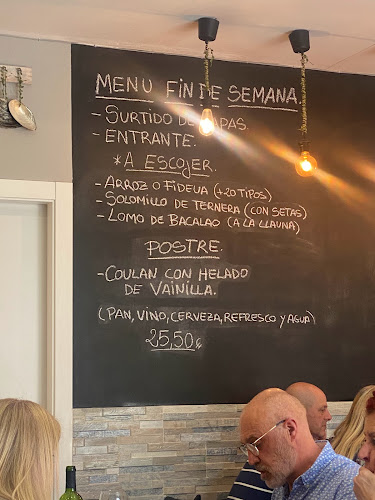 MENU FIN DE SEMANA.
- SURTIDO DE TAPAS.
- ENTRANTE.
* A ESCOJER.
- ARROZ O FIDEUA (+20 TIPOS)
- SOLOMILLO DE TERNERA (CON SETAS)
- LOMO DE BACALAO (A LA LLAUNA)
POSTRE.
- COULAN CON HELADO
DE VAINILLA.
(PAN, VINO, CERVEZA, REFRESCO Y AGUA)
25,50€